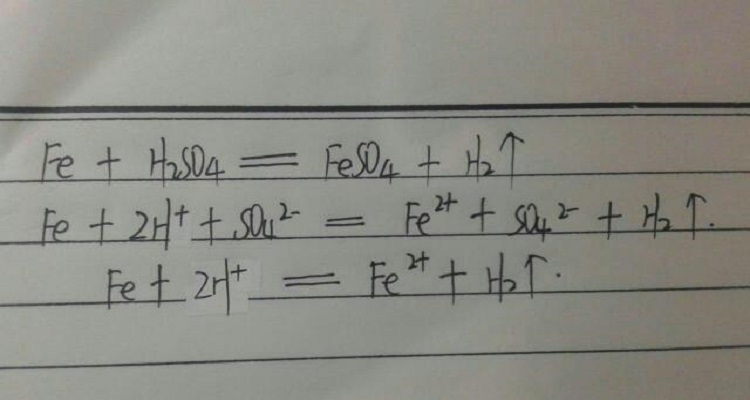 Fe + H₂SO₄ = FeSO₄ + H₂↑
Fe + 2H⁺ + SO₄²⁻ = Fe²⁺ + SO₄²⁻ + H₂↑.
Fe + 2H⁺ = Fe²⁺ + H₂↑.